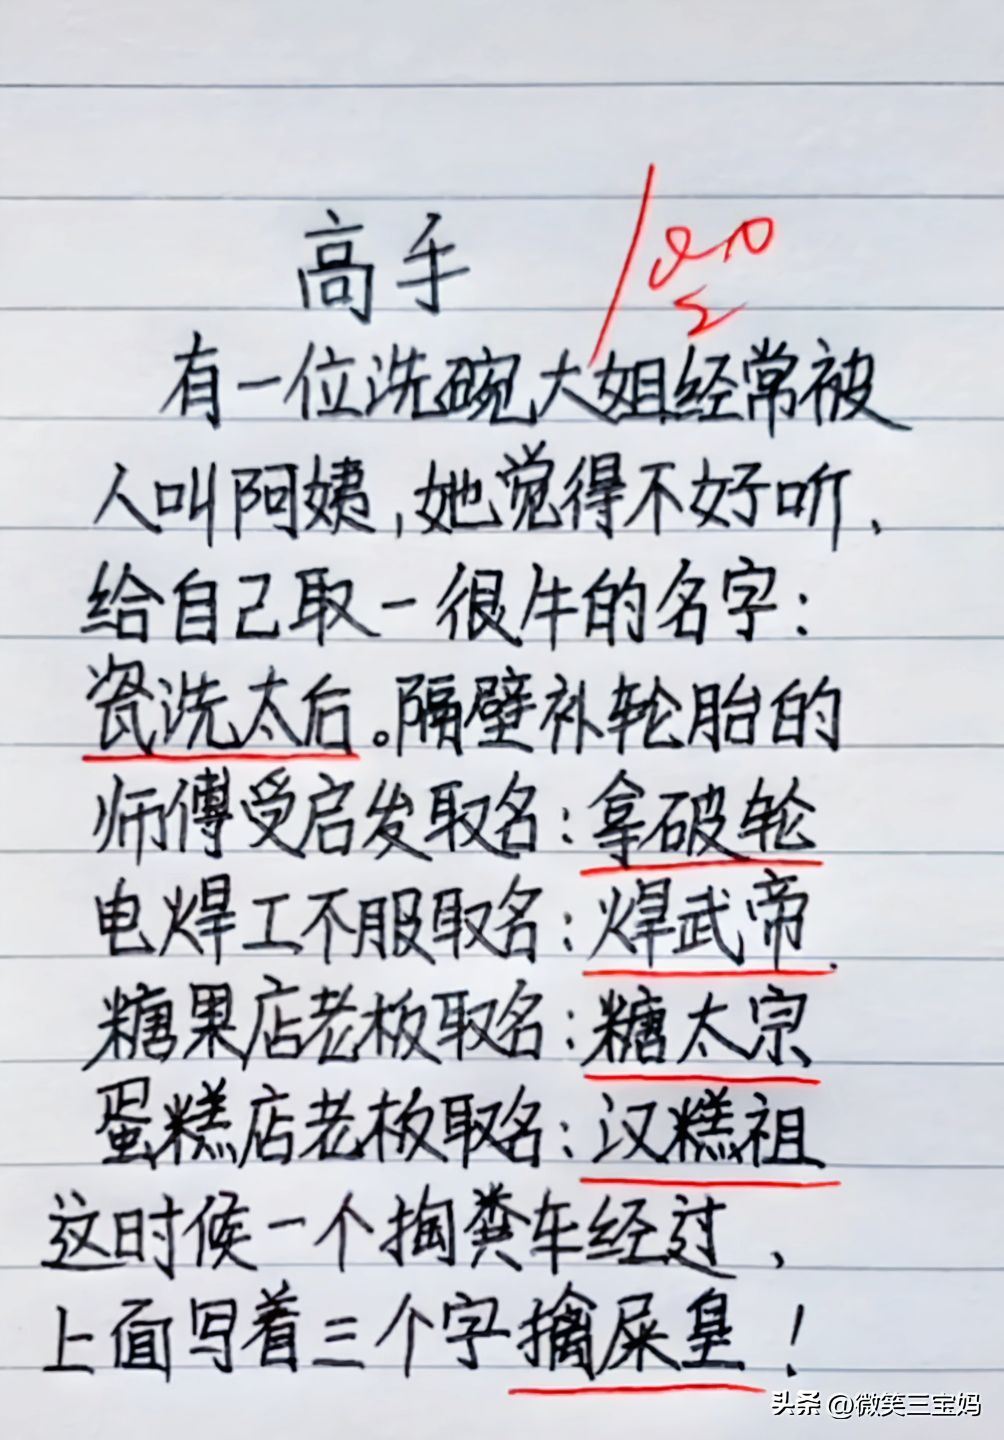 高手
有一位洗碗大姐经常被
人叫阿姨,她觉得不好听、
给自己取一很牛的名字:
瓷洗太后。隔壁补轮胎的
师傅受启发取名:拿破轮
电焊工不服取名:焊武帝.
糖果店老板取名:糖太宗
蛋糕店老板取名:汉糕祖
这时候一个掏粪车经过、
上面写着三个字擒屎皇!
头条 @微笑三宝妈